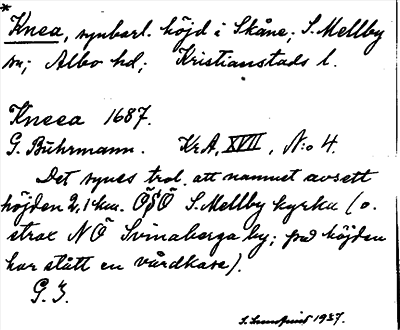 *
Knea, synbarl. höjd i Skåne; S. Mellby
sn; Albo hd; Kristianstads l.
Kneea 1687.
G. Buhrmann. KrA, XVII, N:o 4.
Det synes trol. att namnet avsett
höjden 2,1 km. ÖSÖ S. Mellby kyrka (o.
strax NÖ Svinaberga by; på höjden
har stått en vårdkase).
G. I.